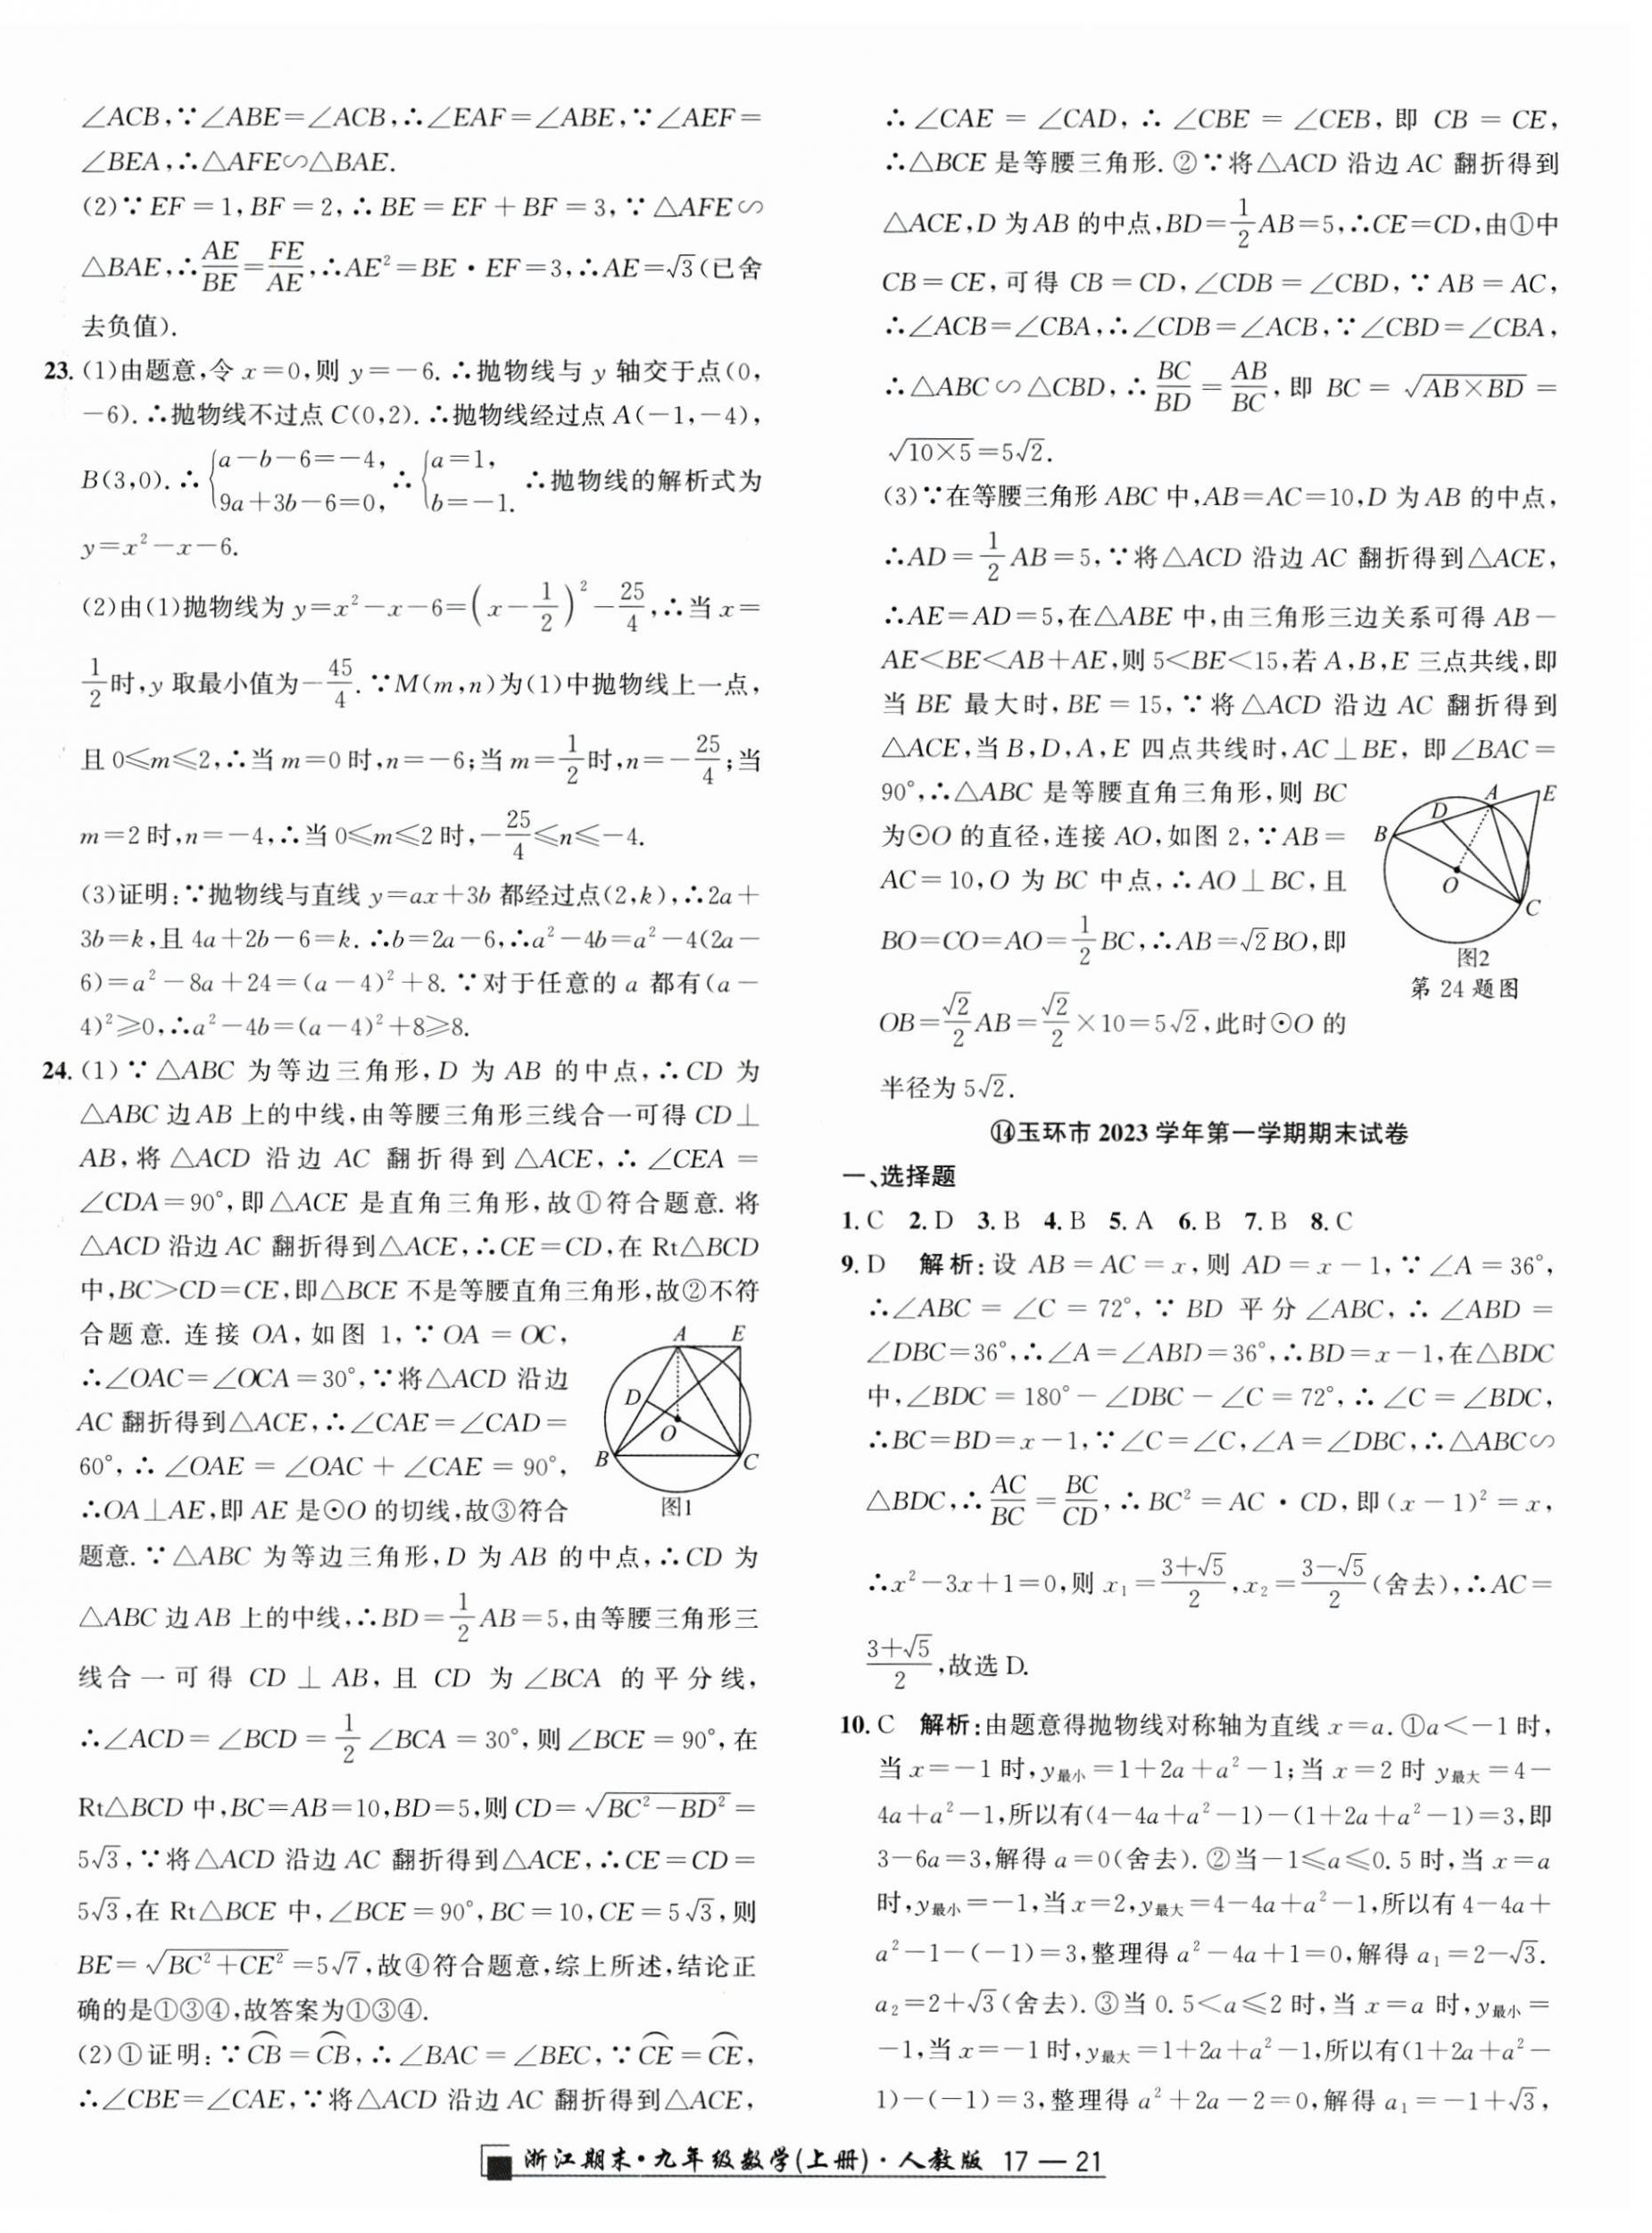 ∠ACB,∵∠ABE=∠ACB,∴∠EAF=∠ABE,∵∠AEF=
∠BEA,∴△AFE∽△BAE.
(2)∵EF=1,BF=2,∴BE=EF+BF=3,∵△AFE∽
△BAE,∴AE/BE=FE/AE,∴AE²=BE·EF=3,∴AE=√3(已舍
去负值).
23.(1)由题意,令x=0,则y=-6.∴抛物线与y轴交于点(0,
-6).∴抛物线不过点C(0,2).∴抛物线经过点A(-1,-4),
B(3,0).∴{a-b-6=-4, 9a+3b-6=0,∴{a=1, b=-1. ∴抛物线的解析式为
y=x²-x-6.
(2)由(1)抛物线为y=x²-x-6=(x-1/2)²-25/4,∴当x=
1/2时,y取最小值为-45/4.∵M(m,n)为(1)中抛物线上一点,
且0≤m≤2,∴当m=0时,n=-6;当m=1/2时,n=-25/4;当
m=2时,n=-4,∴当0≤m≤2时,-25/4≤n≤-4.
(3)证明:∵抛物线与直线y=ax+3b都经过点(2,k),∴2a+
3b=k,且4a+2b-6=k.∴b=2a-6,∴a²-4b=a²-4(2a-
6)=a²-8a+24=(a-4)²+8.∵对于任意的a都有(a-
4)²≥0,∴a²-4b=(a-4)²+8≥8.
24.(1)∵△ABC为等边三角形,D为AB的中点,∴CD为
△ABC边AB上的中线,由等腰三角形三线合一可得CD⊥
AB,将△ACD沿边AC翻折得到△ACE,∴∠CEA=
∠CDA=90°,即△ACE是直角三角形,故①符合题意.将
△ACD沿边AC翻折得到△ACE,∴CE=CD,在Rt△BCD
中,BC>CD=CE,即△BCE不是等腰直角三角形,故②不符
合题意.连接OA,如图1,∵OA=OC,
∴∠OAC=∠OCA=30°,∵将△ACD沿边
AC翻折得到△ACE,∴∠CAE=∠CAD=
60°,∴∠OAE=∠OAC+∠CAE=90°,
∴OA⊥AE,即AE是⊙O的切线,故③符合
A E
D
O
B C
图1
题意.∵△ABC为等边三角形,D为AB的中点,∴CD为
△ABC边AB上的中线,∴BD=1/2AB=5,由等腰三角形三
线合一可得CD⊥AB,且CD为∠BCA的平分线,
∴∠ACD=∠BCD=1/2∠BCA=30°,则∠BCE=90°,在
Rt△BCD中,BC=AB=10,BD=5,则CD=√(BC²-BD²)=
5√3,∵将△ACD沿边AC翻折得到△ACE,∴CE=CD=
5√3,在Rt△BCE中,∠BCE=90°,BC=10,CE=5√3,则
BE=√(BC²+CE²)=5√7,故④符合题意,综上所述,结论正
确的是①③④,故答案为①③④.
(2)①证明:∵⌒CB=⌒CB,∴∠BAC=∠BEC,∵⌒CE=⌒CE,
∴∠CBE=∠CAE,∵将△ACD沿边AC翻折得到△ACE,
∴∠CAE=∠CAD,∴∠CBE=∠CEB,即CB=CE,
∴△BCE是等腰三角形.②∵将△ACD沿边AC翻折得到
△ACE,D为AB的中点,BD=1/2AB=5,∴CE=CD,由①中
CB=CE,可得CB=CD,∠CDB=∠CBD,∵AB=AC,
∴∠ACB=∠CBA,∴∠CDB=∠ACB,∵∠CBD=∠CBA,
∴△ABC∽△CBD,∴BC/BD=AB/BC,即BC=√(AB×BD)=
√(10×5)=5√2.
(3)∵在等腰三角形ABC中,AB=AC=10,D为AB的中点,
∴AD=1/2AB=5,∵将△ACD沿边AC翻折得到△ACE,
∴AE=AD=5,在△ABE中,由三角形三边关系可得AB-
AE<BE<AB+AE,则5<BE<15,若A,B,E三点共线,即
当BE最大时,BE=15,∵将△ACD沿边AC翻折得到
△ACE,当B,D,A,E四点共线时,AC⊥BE,即∠BAC=
90°,∴△ABC是等腰直角三角形,则BC
为⊙O的直径,连接AO,如图2,∵AB=
AC=10,O为BC中点,∴AO⊥BC,且
BO=CO=AO=1/2BC,∴AB=√2BO,即
OB=√2/2AB=√2/2×10=5√2,此时⊙O的
半径为5√2.
A E
D
B
O
C
图2
第24题图
⑭玉环市2023学年第一学期期末试卷
一、选择题
1.C 2.D 3.B 4.B 5.A 6.B 7.B 8.C
9.D 解析:设AB=AC=x,则AD=x-1,∵∠A=36°,
∴∠ABC=∠C=72°,∵BD平分∠ABC,∴∠ABD=
∠DBC=36°,∴∠A=∠ABD=36°,∴BD=x-1,在△BDC
中,∠BDC=180°-∠DBC-∠C=72°,∴∠C=∠BDC,
∴BC=BD=x-1,∵∠C=∠C,∠A=∠DBC,∴△ABC∽
△BDC,∴AC/BC=BC/CD,∴BC²=AC·CD,即(x-1)²=x,
∴x²-3x+1=0,则x₁=(3+√5)/2,x₂=(3-√5)/2(舍去),∴AC=
(3+√5)/2,故选D.
10.C 解析:由题意得抛物线对称轴为直线x=a.①a<-1时,
当x=-1时,y最小=1+2a+a²-1;当x=2时y最大=4-
4a+a²-1,所以有(4-4a+a²-1)-(1+2a+a²-1)=3,即
3-6a=3,解得a=0(舍去).②当-1≤a≤0.5时,当x=a
时,y最小=-1,当x=2,y最大=4-4a+a²-1,所以有4-4a+
a²-1-(-1)=3,整理得a²-4a+1=0,解得a₁=2-√3.
a₂=2+√3(舍去).③当0.5<a≤2时,当x=a时,y最小=
-1,当x=-1时,y最大=1+2a+a²-1,所以有(1+2a+a²-
1)-(-1)=3,整理得a²+2a-2=0,解得a₁=-1+√3,
浙江期末·九年级数学(上册)·人教版 17—21